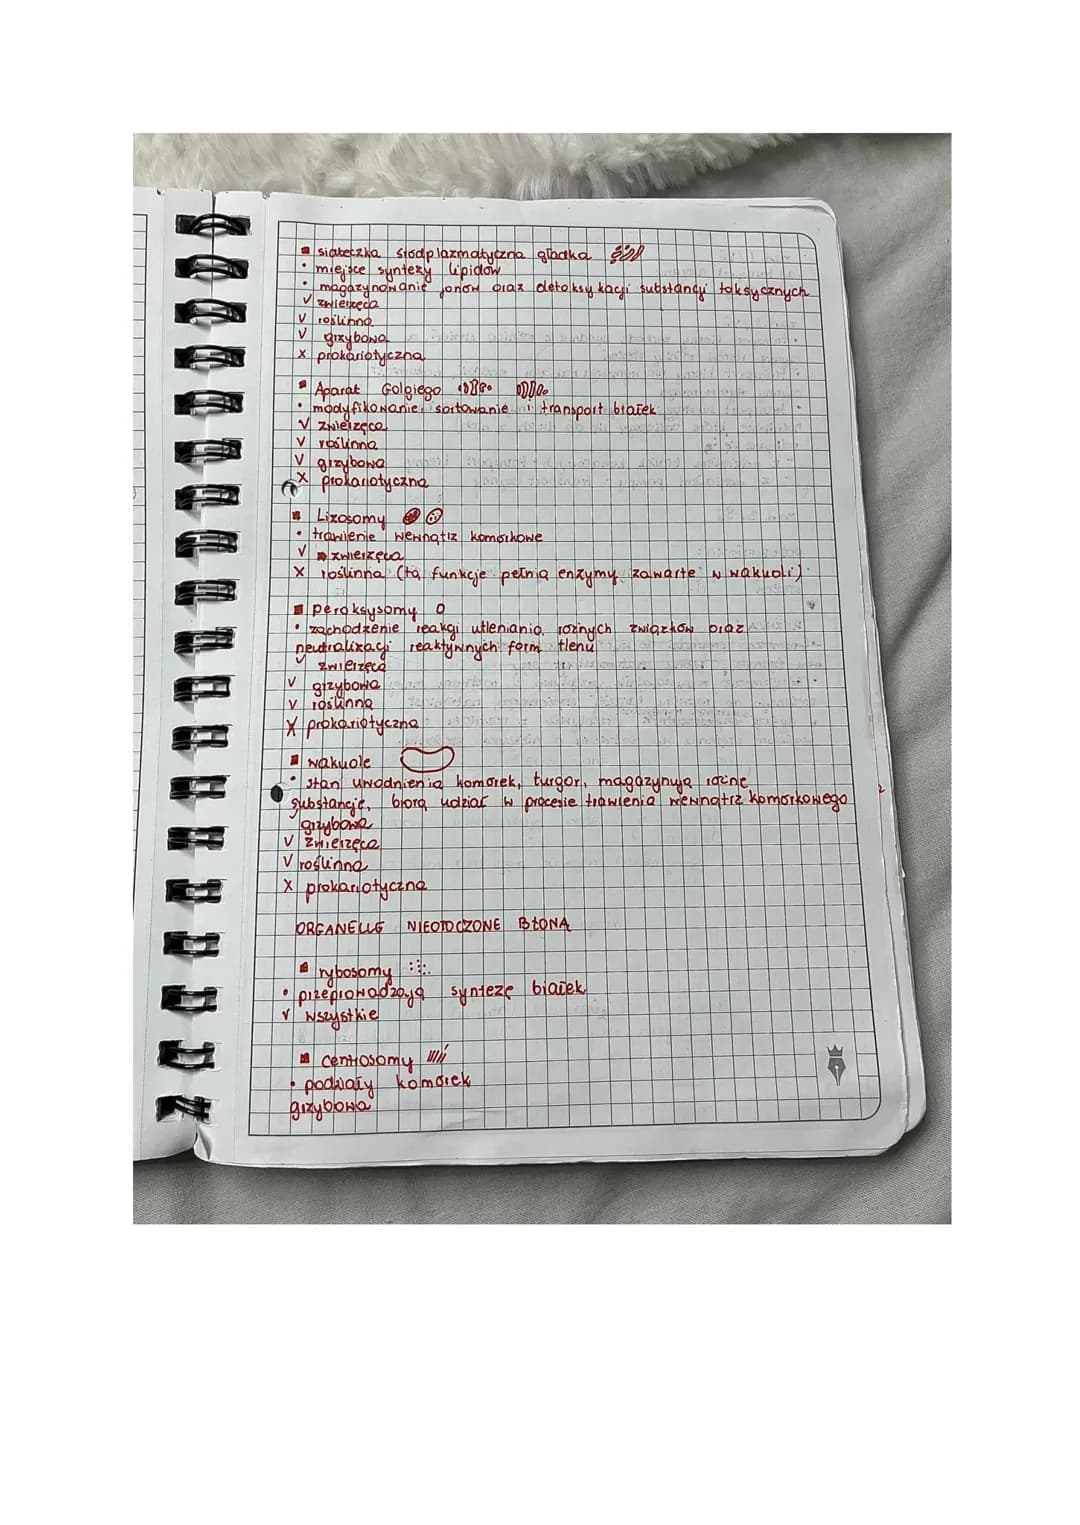 ▪ siateczka śródplazmatyczna gładka
• miejsce syntezy lipidów
• magazynowanie jonów oraz detoksykacji substancji toksycznych
✓ zwierzęca
✓ roślinna
✓ grzybowa
x prokariotyczna
▪ Aparat Golgiego
• modyfikowanie, sortowanie i transport białek
✓ zwierzęca
✓ roślinna
✓ grzybowa
X prokariotyczna
▪ Lizosomy
• trawienie wewnątrz komórkowe
✓ zwierzęca
X roślinna (tą funkcje pełnią enzymy zawarte w wakuoli)
▪ peroksysomy
• zachodzenie reakcji utleniania różnych związków oraz
neutralizacji reaktywnych form tlenu
✓ zwierzęca
✓ grzybowa
✓ roślinna
X prokariotyczna
▪ wakuole
• stan uwodnienia komórek, turgor, magazynują różne
substancje, biorą udział w procesie trawienia wewnątrz komórkowego
✓ grzybowa
✓ zwierzęca
✓ roślinna
X prokariotyczna
ORGANELLE NIEOTOCZONE BŁONĄ
▪ rybosomy
• przeprowadzają syntezę białek
✓ wszystkie
▪ centrosomy
• podziały komórek
grzybowa